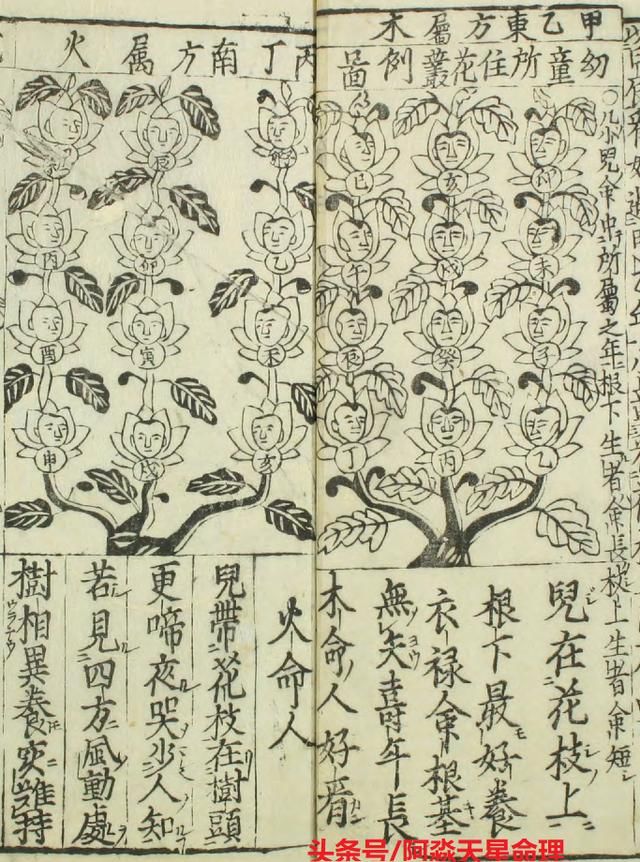 〇凡小兒命中所屬之年根下生者命長枝上生者命短
甲乙東方屬木
幼童所住花叢例圖
卯 亥 巳
未 戌 午
子 癸 辰
乙 丙 丁
兒在花枝上
根下最好養
衣祿命根基
無失壽年長
木命人好看
丙丁南方屬火
辰
乙 卯 丙
未 寅 酉
亥 戌 申
火命人
兒帶花枝在樹頭
更啼夜哭少人知
若見四方風動處
樹相異養實難持
头条号/阿淼天星命理